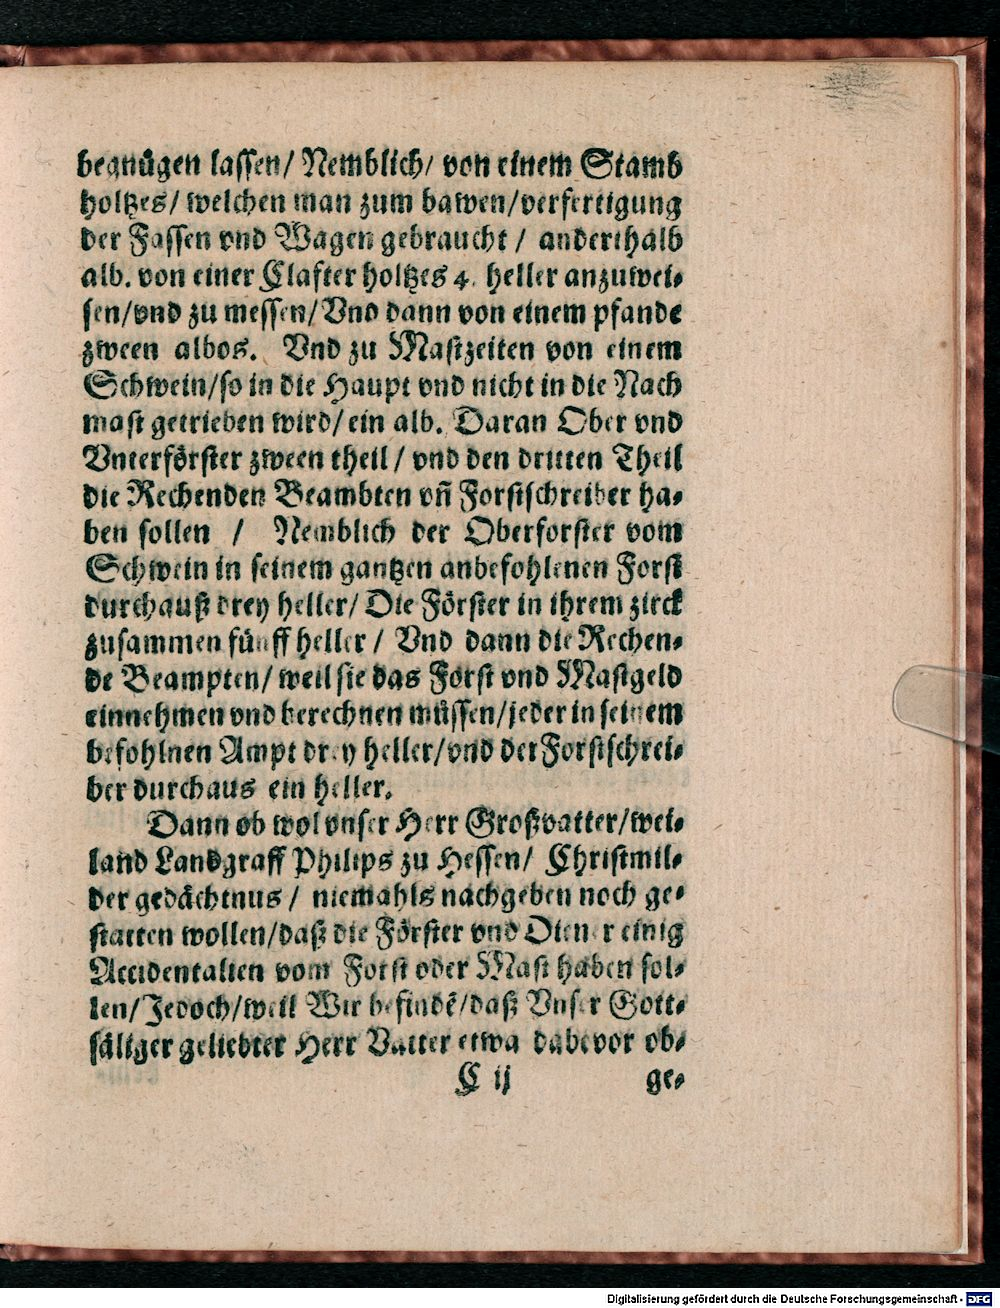 begnügen lassen/ Nemblich/ von einem Stamb
holtzes/ welchen man zum bawen/verfertigung
der Fassen vnd Wagen gebraucht / anderthalb
alb. von einer Clafter holtzes 4. heller anzuwei-
sen/vnd zu messen/ Vnd dann von einem pfande
zween albos. Vnd zu Mastzeiten von einem
Schwein/so in die Haupt vnd nicht in die Nach
mast getrieben wird/ ein alb. Daran Ober vnd
Vnterförster zween theil / vnd den dritten Theil
die Rechenden Beambten vñ Forstschreiber ha-
ben sollen / Nemblich der Oberforster vom
Schwein in seinem gantzen anbefohlenen Forst
durchauß drey heller/ Die Förster in ihrem zirck
zusammen fünff heller / Vnd dann die Rechen-
de Beampten/ weil sie das Forst vnd Mastgeld
einnehmen vnd berechnen müssen/jeder in seinem
befohlnen Ampt drey heller/vnd der Forstschrei-
ber durchaus ein heller.
Dann ob wol vnser Herr Großvatter/wei-
land Landgraff Philips zu Hessen/ Christmil-
der gedächtnus / niemahls nachgeben noch ge-
statten wollen/daß die Förster vnd Diener einig
Accidentalien vom Forst oder Mast haben sol-
len/Jedoch/weil Wir befindē/daß Vnser Gott-
säliger geliebter Herr Vatter etwa dabevor ob-
C ij ge-
Digitalisierung gefördert durch die Deutsche Forschungsgemeinschaft - DFG